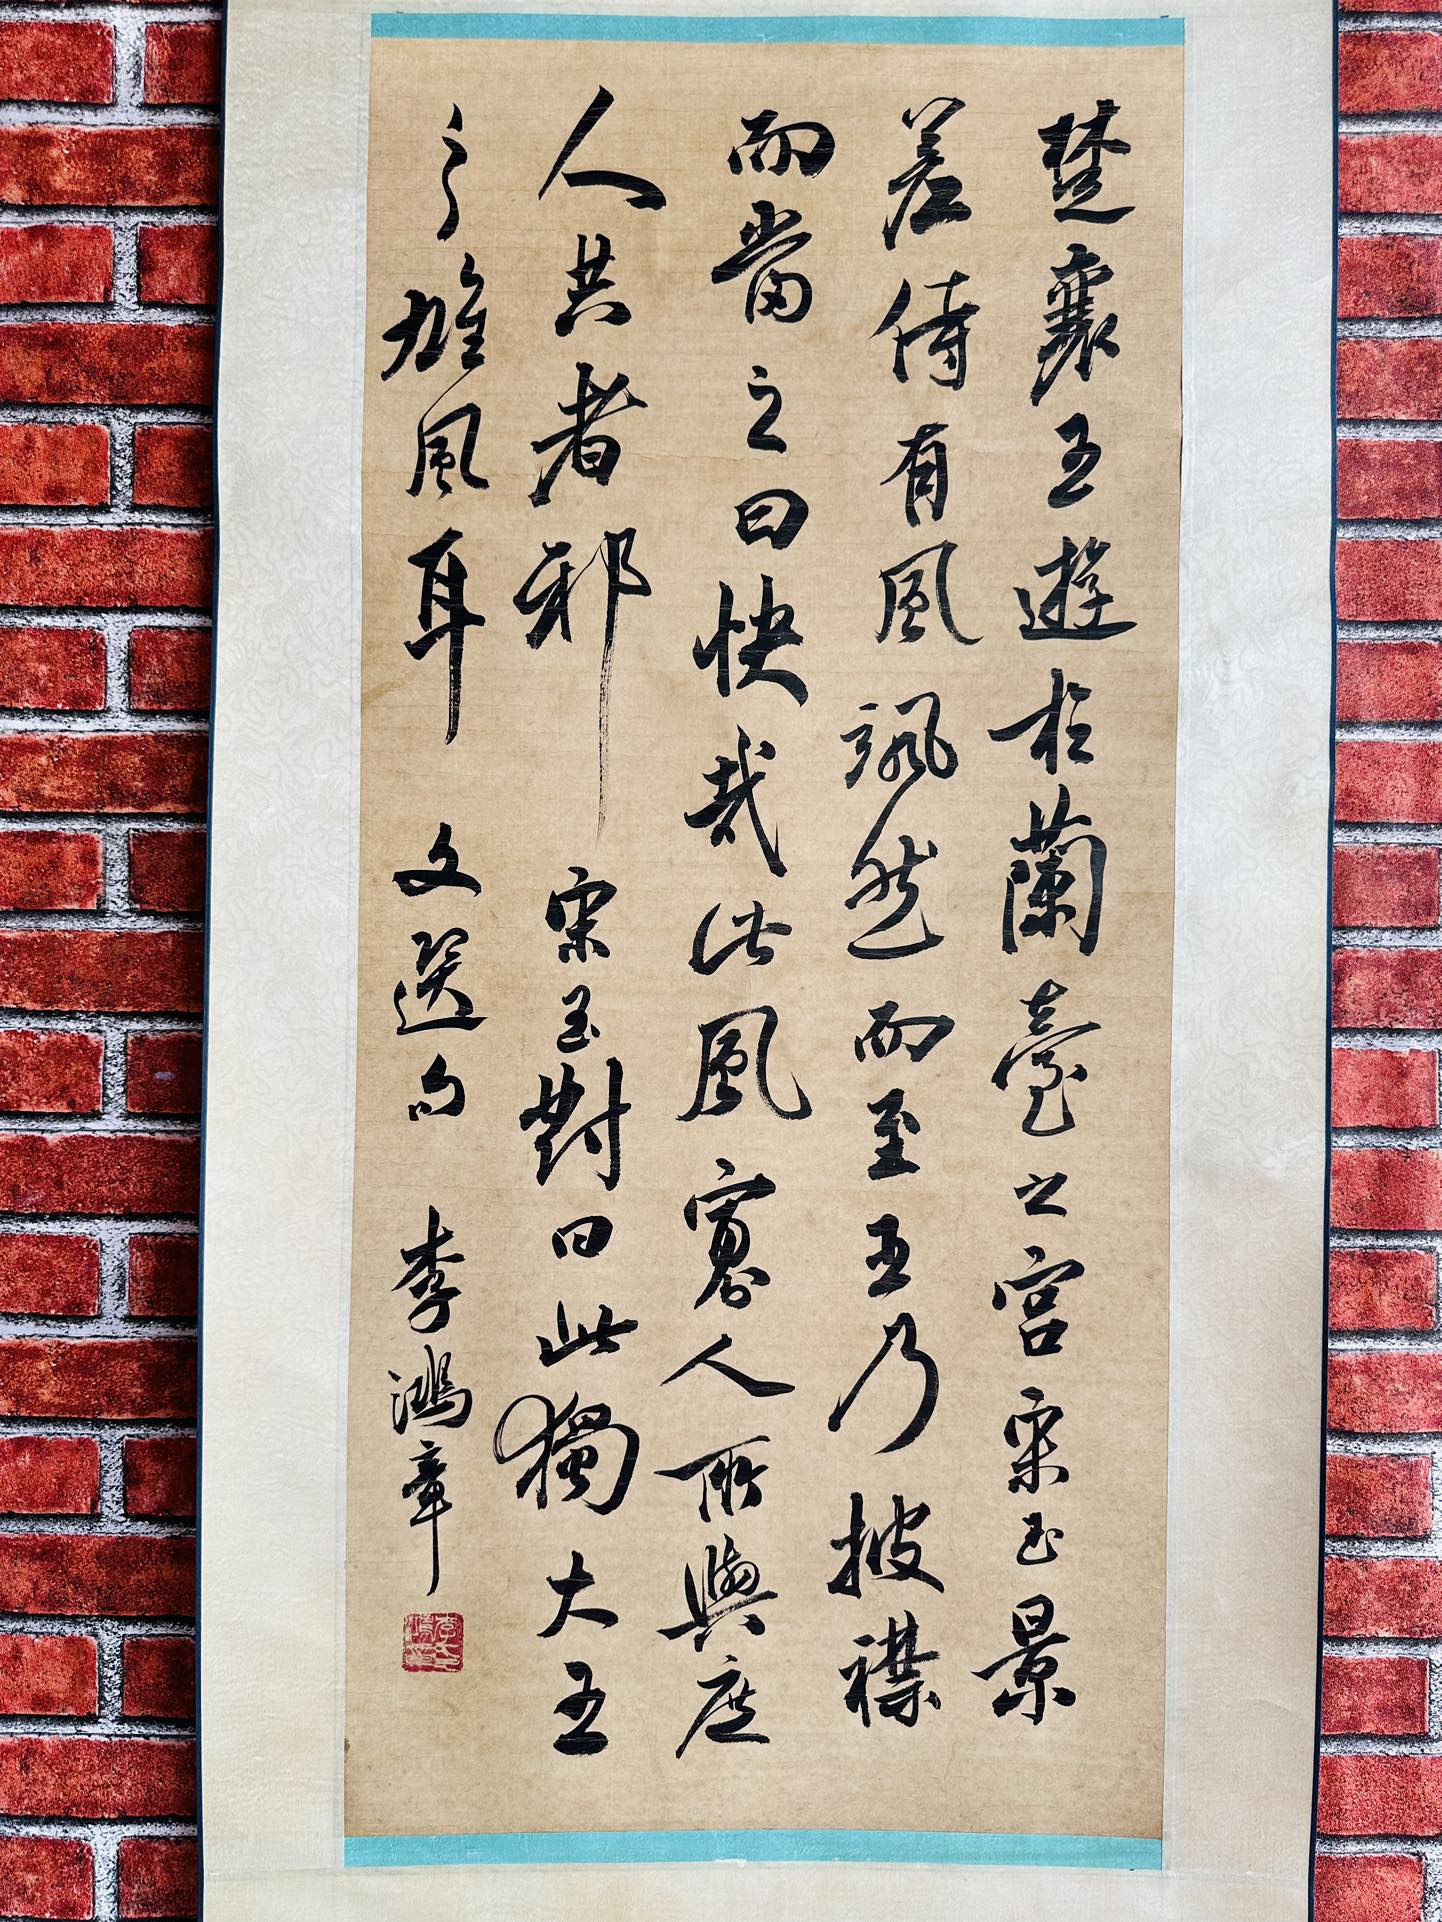 楚襄王遊於蘭臺之宮宋玉景
差侍有風颯然而至王乃披襟
而當之曰快哉此風寡人所與庶
人共者邪宋玉對曰此獨大王
之雄風耳文選句李鴻章